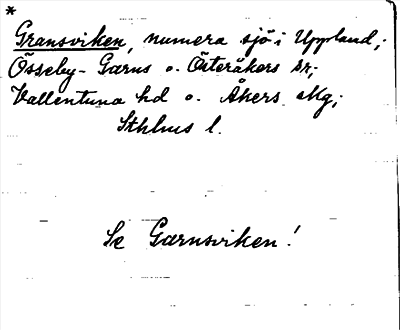 *
Gransviken, numera sjö i Uppland;
Össeby-Garns o. Österåkers sr;
Vallentuna hd o. Åkers skg;
Sthlms l.
Se Garnsviken!